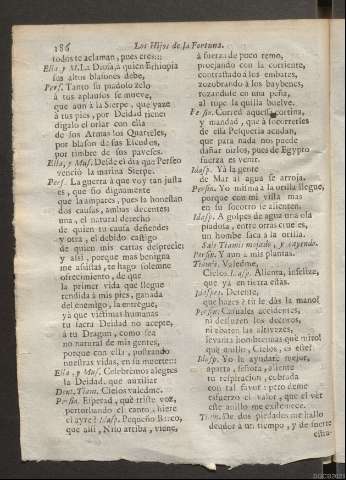 186
Los Hijos de la Fortuna.
todos te aclaman, pues eres:::
Ella, y M. La Diosa, à quien Ethiopia
sus altos blasones debe,
Pers. Tanto su piadoso zelo
à tus aplausos se mueve,
que aun à la Sierpe, que yaze
à tus pies, por Deidad tienen
digalo el orlar con ella
de sus Armas los Quarteles,
por blason de sus Escudos,
por timbre de sus paveses.
Ella, y Mus. Desde el dia que Perseo
venciò la marina Sierpe.
Pers. La guerra à que voy tan justa
es, que fio dignamente
que la ampares, pues la honestan
dos causas, ambas decentes
una, el natural derecho
de quien tu causa defiendes
y otra, el debido castigo
de quien mis cartas desprecie;
y assi, porque mas benigna
me assistas, te hago solemne
ofrecimiento, de que
la primer vida que llegue
rendida à mis pies, ganada
del enemigo, la entregue,
yà que victimas humanas
tu sacra Deidad no acepte,
à tu Dragon, como sea
no natural de mis gentes,
porque con ella, postrando
nuestras vidas, en tu muerte:::
Ella, y Mus. Celebremos alegres
la Deidad, que auxiliar
Dent. Tiam. Cielos valedme.
Persin. Esperad, què triste voz,
perturbando el canto, hiere
el ayre? Idasp. Pequeño Barco,
que assi, Nilo arriba, viene,
à fuerza de poco remo,
proejando con la corriente,
contrastado à los embates,
zozobrando à los baybenes,
rozandose en una peña,
al tope la quilla buelve.
Persin. Corred aquessa cortina,
y mandad, que à socorrerles
de essa Pesqueria acudan,
que para nada nos puede
dañar oirlos, pues de Egypto
fuerza es venir.
Idasp. Yà la gente
de Mar al agua se arroja.
Persin. Yo misma à la orilla llegue,
porque con mi vista mas
en su socorro se alienten.
Idasp. A golpes de agua una ola
piadosa, entre otras crueles,
un hombre saca à la orilla.
Sale Tiamis mojado, y cayendo.
Persin. Y aun à mis plantas.
Tiamis. Valedme,
Cielos. Idasp. Alienta, infelize,
que yà en tierra estàs.
Idaspes. Detente,
què hazes? tù le dàs la mano?
Persin. Casuales accidentes,
ni desluzen los decoros,
ni abaten las altivezes,
levanta
que assiste, Cielos, es este!
Idasp. Yo le ayudarè mejor,
aparta, señora, aliente
tu respiracion, cobrada
con tal favor; pero deme
esfuerzo el valor, que el vèr
este anillo me estremece.
Tiam. De dos piedades me hallo
deudor à un tiempo, y de suerte
estra-